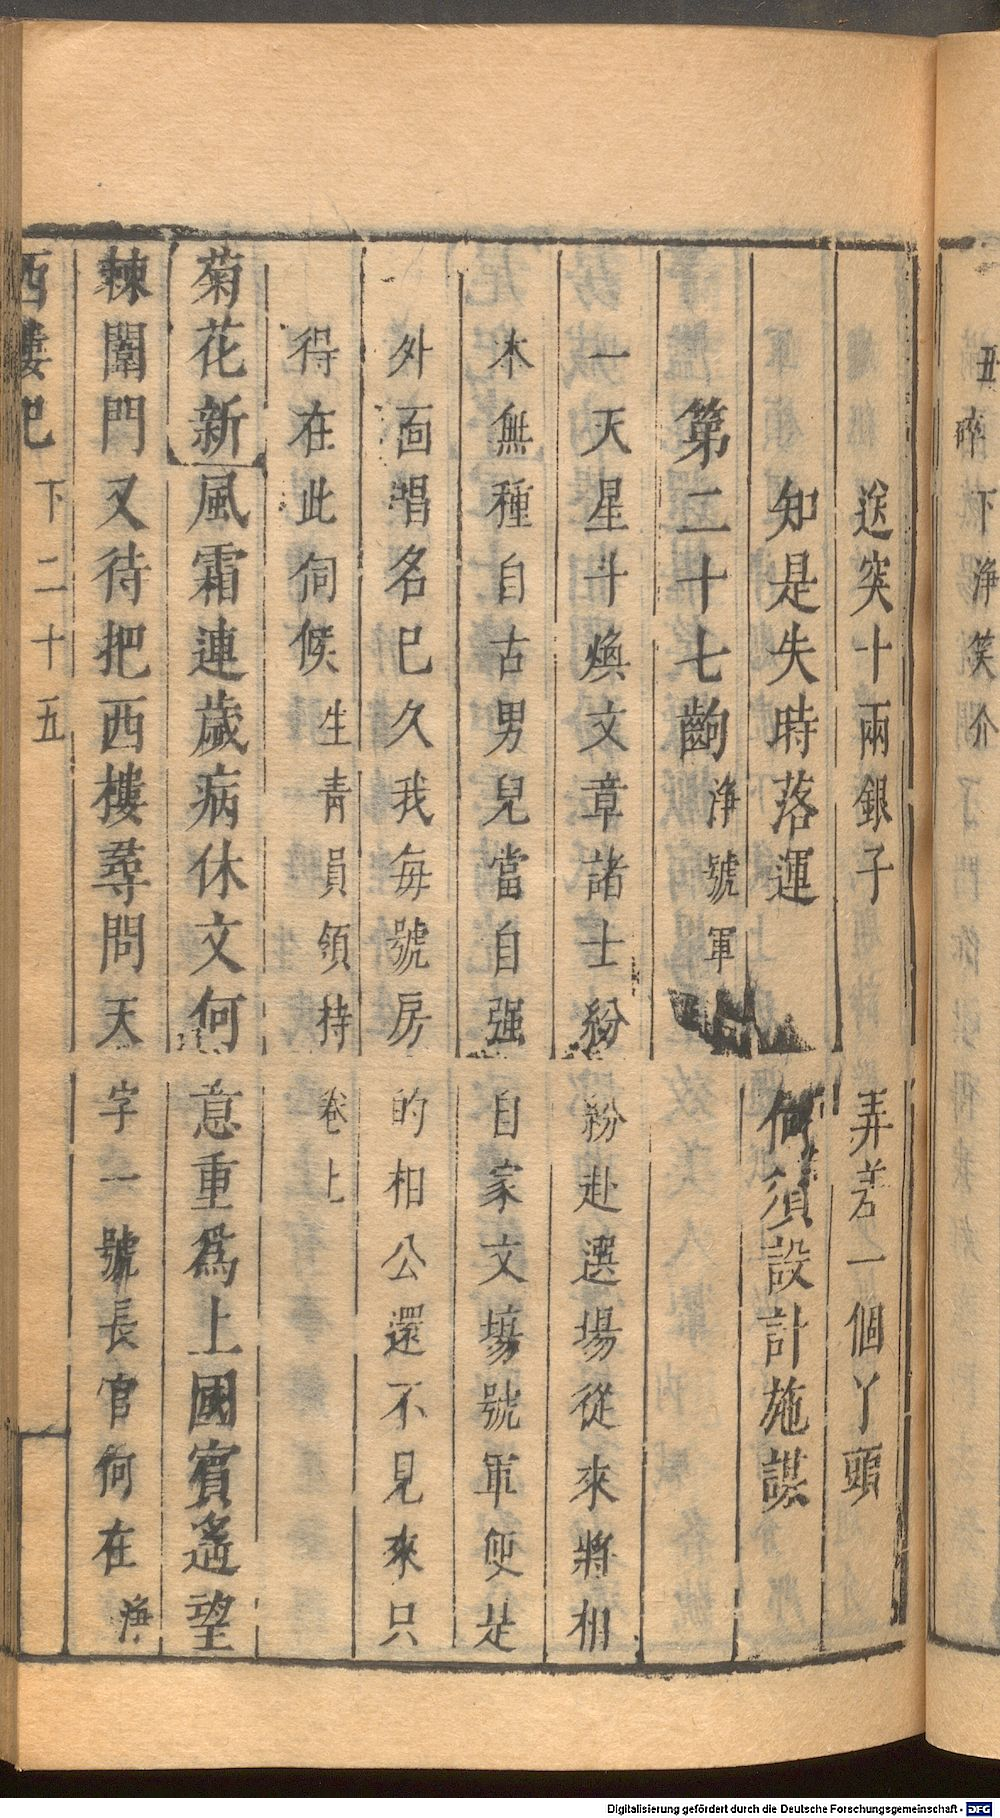 丑碎 下淨笑介
送突十兩銀子 弄差一個丫頭
知是失時落運 何須設計施謀
第二十七齣 淨號軍
一天星斗煥文章諸士紛紛赴選場從來將相
本無種自古男兒當自强自家文場號軍便是
外面唱名已久我每號房的相公還不見來只
得在此伺候 生青員領持卷上
菊花新 風霜連歲病休文何意重爲上國賓遙望
棘闈門又待把西樓尋問天字一號長官何在 淨
西樓記 下二十五
Digitalisierung gefördert durch die Deutsche Forschungsgemeinschaft - DFG